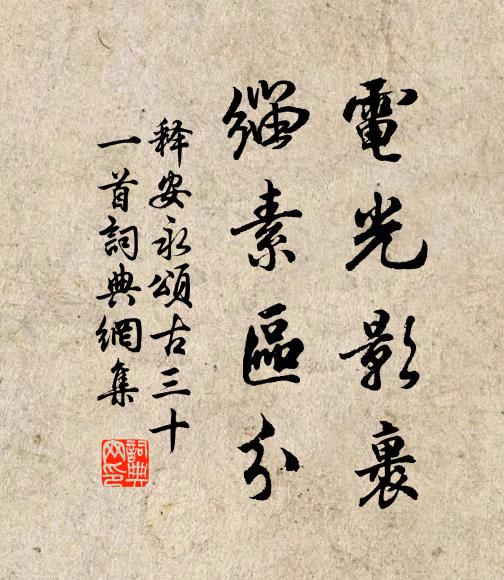 電光影裏
緇素區分
释安永頌古三十
一首詞典網集
詞典網印